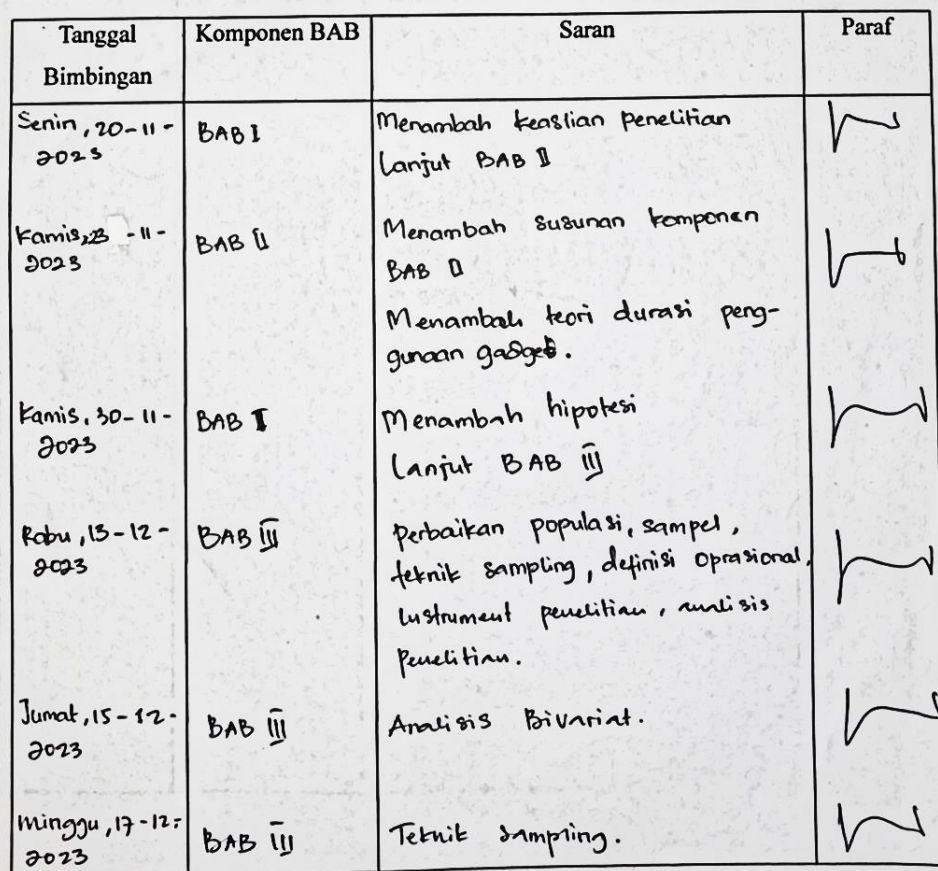 Tanggal Bimbingan
Komponen BAB
Saran
Paraf
Senin, 20-11-
2023
BAB I
Menambah keaslian penelitian
Lanjut BAB II
Kamis, 23 -11-
2023
BAB II
Menambah susunan komponen
BAB II
Menambah teori durasi peng-
gunaan gadget.
Kamis, 30-11-
2023
BAB
Menambah hipotesi
Lanjut BAB III
Rabu, 13-12-
2023
BAB III
Perbaikan populasi, sampel,
teknik sampling, definisi oprasional,
Instrument penelitian, analisis
Penelitian.
Jumat, 15-12-
2023
BAB III
Analisis Bivariat.
Minggu, 17-12-
2023
BAB III
Teknik sampling.